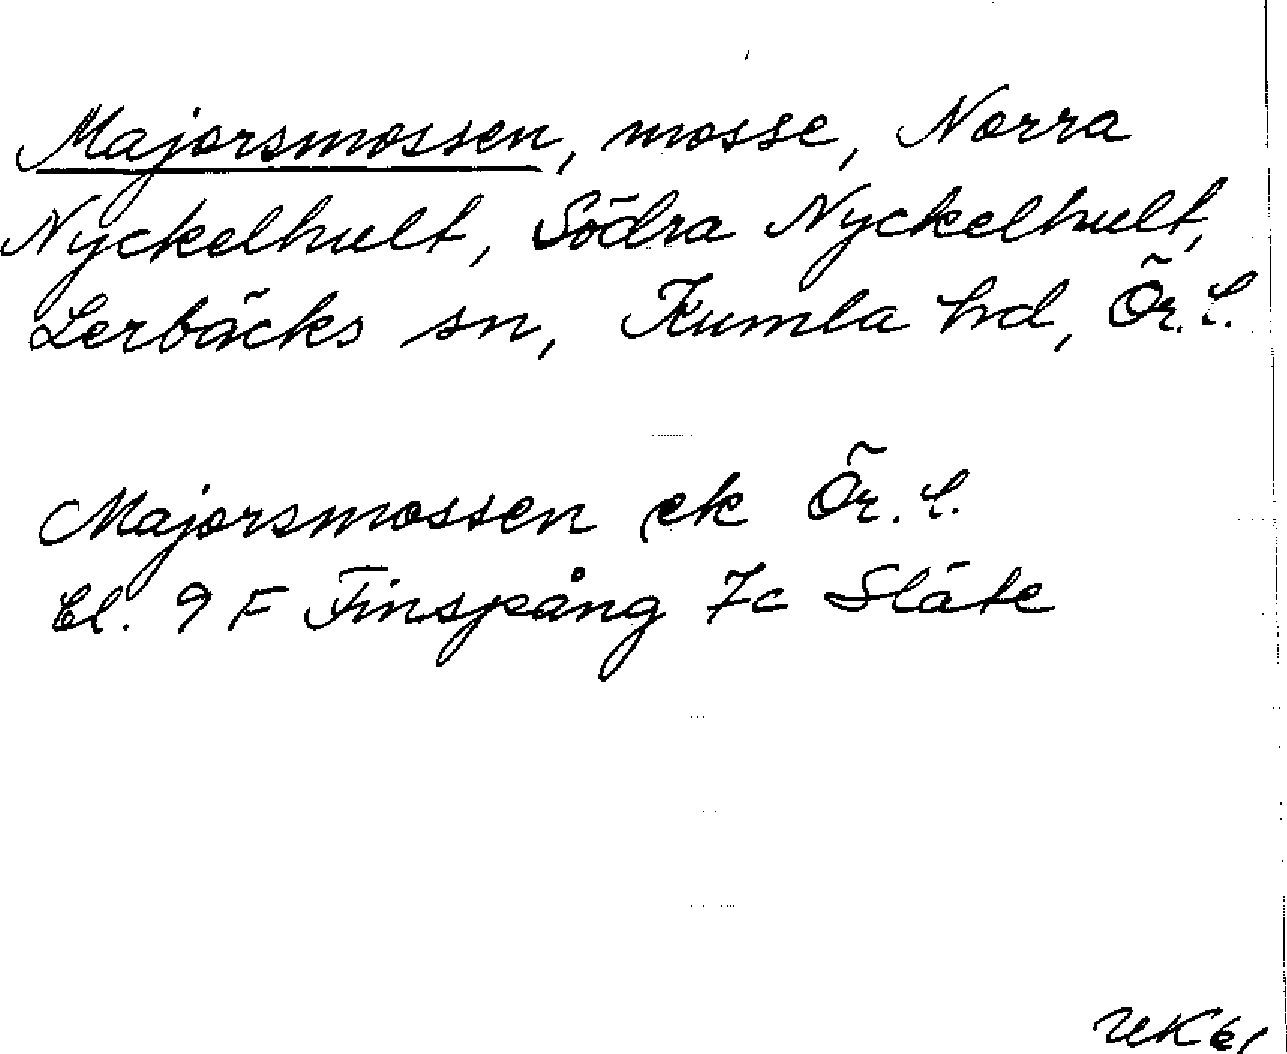 Majorsmossen, mosse, Norra
Nyckelhult, Södra Nyckelhult,
Lerbäcks sn, Kumla hd, Ör. l.
Majorsmossen ek Ör. l.
bl. 9 F Finspång 7c Släte
UK 61